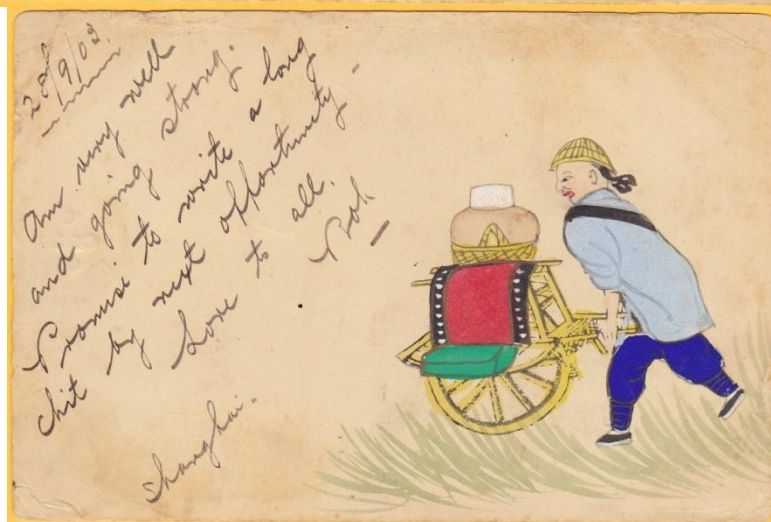 28/9/03.
Am very well
and going strong.
Promise to write a long
chit by next opportunity -
Love to all.
Bob
Shanghai.